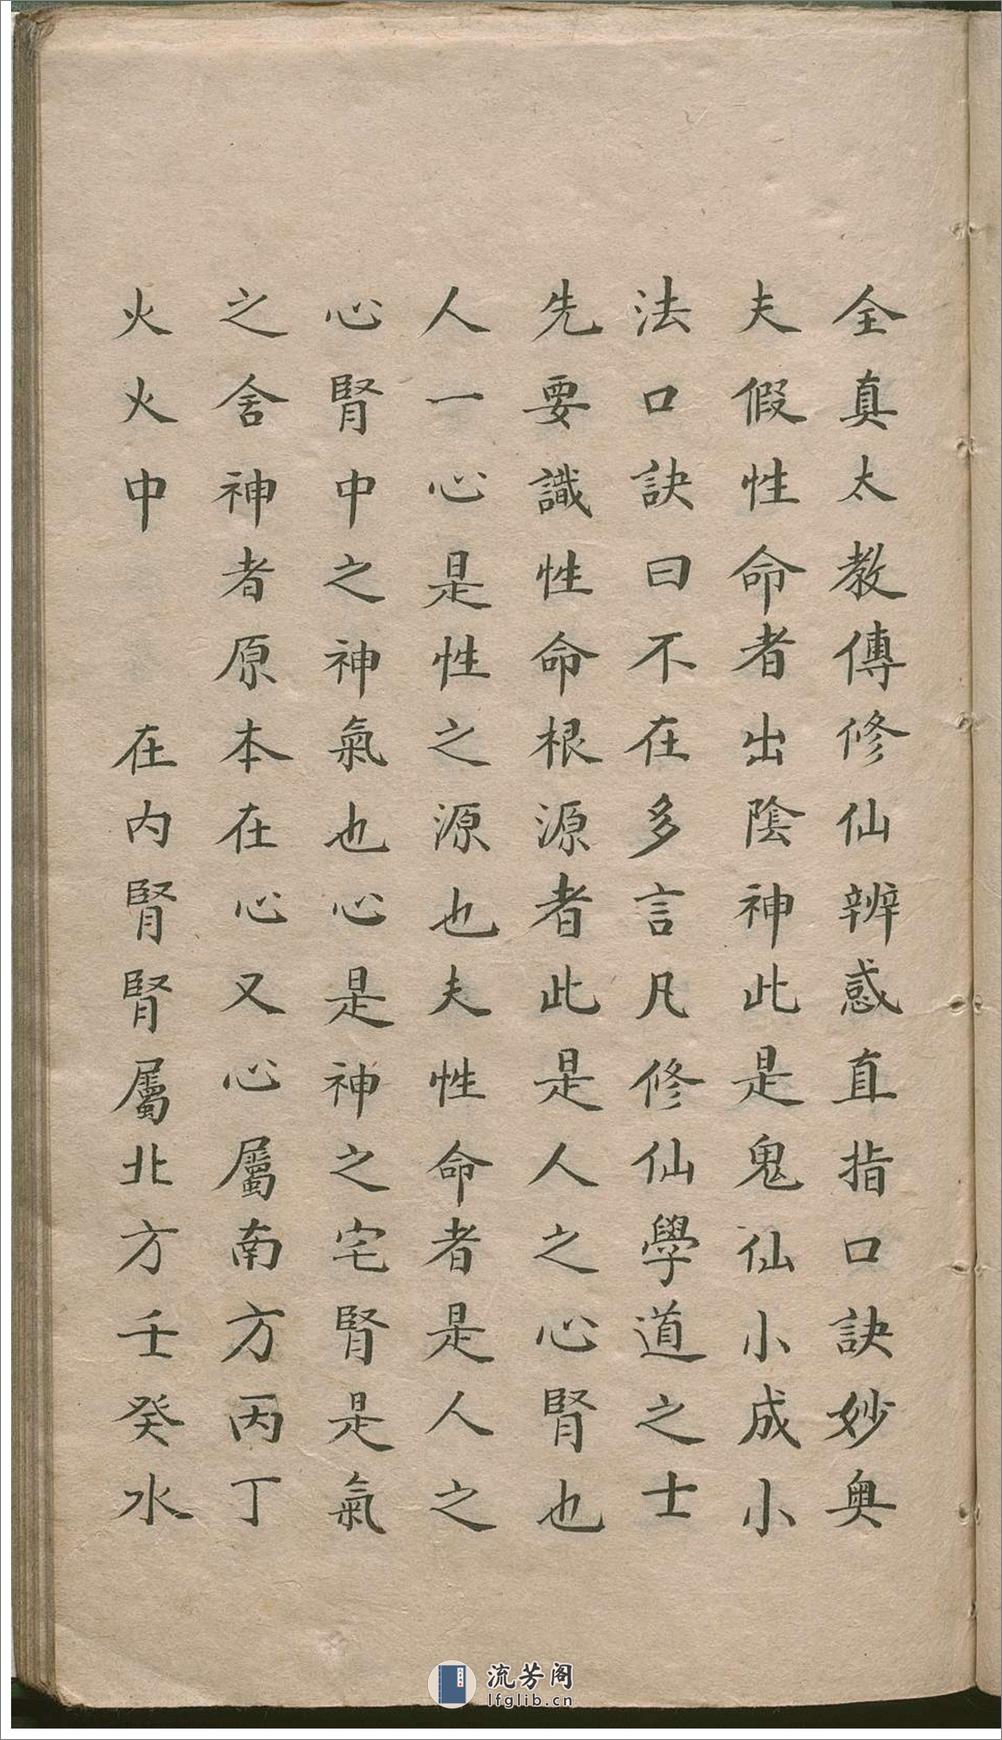 全真太教傳修仙辨惑直指口訣妙奥
夫假性命者出陰神此是鬼仙小成小
法口訣曰不在多言凡修仙學道之士
先要識性命根源者此是人之心腎也
人一心是性之源也夫性命者是人之
心腎中之神氣也心是神之宅腎是氣
之舍神者原本在心又心屬南方丙丁
火火中　在内腎腎屬北方壬癸水
流芳阁
lfglib.cn